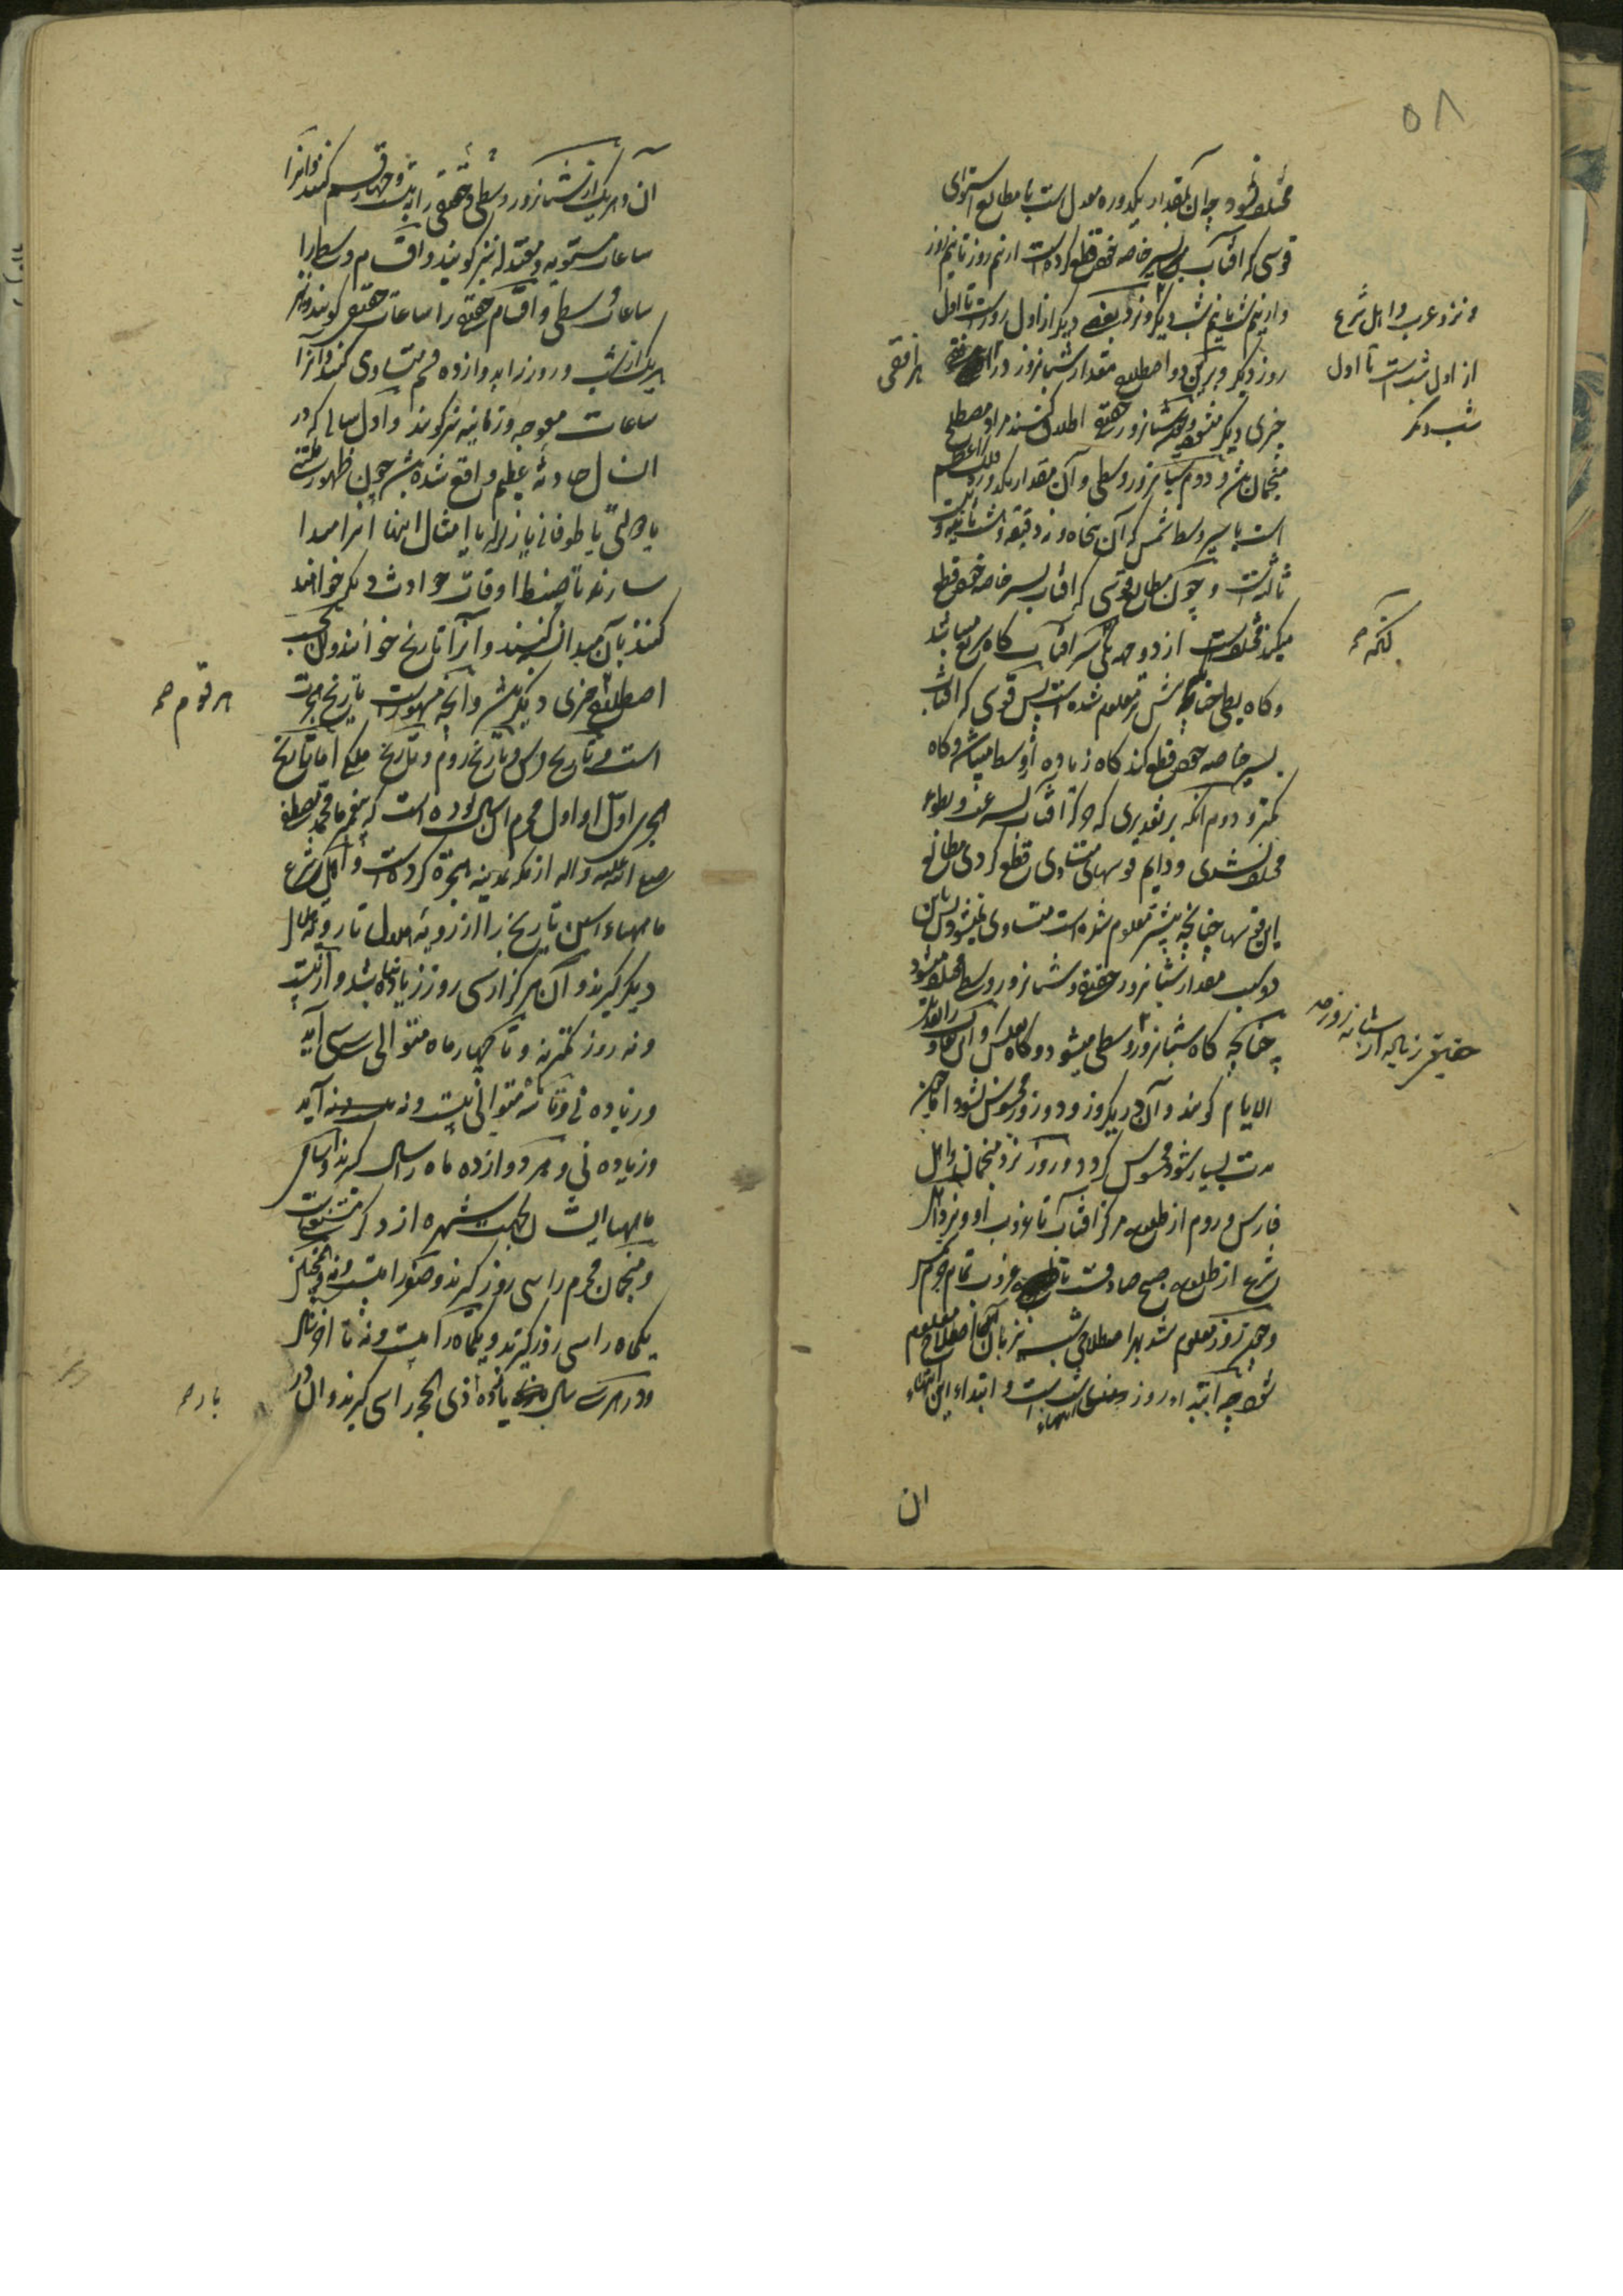 ۵۸
مختلف نشود چه آن بمقدار یکدوره معدل است با مطالع استوائی
قوسی که افتاب بسیر خاصه خود قطع کرده است از نیم روز تا نیم روز
و از نیم شب تا نیم شب دیگر و نزد بعضی دیگر از اول روزست تا اول
و نزد عرب و اهل شرع
از اول شب است تا اول
شب دیگر
روز دیگر و برین دو اصطلاح مقدار شبانروز در
هر افقی
چیزی دیگر شبانروز حقیقی اطلاق کنند مراد مصطلح
منجمان باشد و دوم شبانروز وسطی و آن مقدار یکدوره فلک اعظم
است با سیر وسط شمس که آن پنجاه و نه دقیقه و هشت ثانیه و بیست
ثالثه است و چون مطالع قوسی که افتاب بسیر خاصه خود قطع
میکند مختلف است از دو جهه یکی آنکه سیر افتاب گاه سریع میباشد
و گاه بطی چنانچه پیش تر معلوم شده است پس قوسی که افتاب
بسیر خاصه خود قطع کند گاه زیاده از وسط میباشد و گاه
کمتر و دوم آنکه بر تقدیری که حرکت افتاب بسرعت و بطوء
مختلف نشدی و دایم قوسهای متساوی قطع کردی مطالع
این قوسها چنانچه پیشتر معلوم شده است متساوی نمیشود پس باین
دو سبب مقدار شبانروز حقیقی و شبانروز وسطی مختلف میشود
چنانچه گاه شبانروز وسطی میشود و گاه بعکس و این تفاوت را تعدیل
حقیقی زیاده از شبانه روز صح
الایام گویند و آن در یکروز و دو روز محسوس نشود اما چون
مدت بسیار شود محسوس گردد و روز نزد منجمان و اهل
فارس و روم از طلوع مرکز افتاب تا غروب او و نزد اهل
شرع از طلوع صبح صادق است تا غروب تمام جرم شمس
و چون روز معلوم شد بهر اصطلاحی شب نیز بآن اصطلاح معلوم
شود چه ابتداء روز انتهاء شب است و ابتداء این انتهاء
ان
آن و هر یک از شبانروز وسطی و حقیقی را به بیست و چهار قسم کنند و آنرا
ساعات مستویه و معتدله نیز گویند و اقسام وسطی را
ساعات وسطی و اقسام حقیقی را ساعات حقیقی گویند و نیز
هر یک از شب و روز را به دوازده قسم متساوی کنند و آنرا
ساعات معوجه و زمانیه نیز گویند و اول سالی که در
ان سال حادثه عظیم واقع شده باشد چون ظهور ملتی
یا دولتی یا طوفانی یا زلزله یا امثال اینها آنرا مبدا
سازند تا ضبط اوقات حوادث دیگر خواهند
کنند بآن مبدا نسبت کنند و آنرا تاریخ خوانند و آن بحسب
اصطلاح چیزی دیگر باشد و آنچه مشهور است تاریخ هجرت
هر قوم صح
است و تاریخ فرس و تاریخ روم و تاریخ ملکی اما تاریخ
هجری اول او اول محرم آن سال بوده است که پیغمبر ما محمد مصطفی
صلی الله علیه واله از مکه بمدینه هجرت کرده است و اهل شرع
ماههاء این تاریخ را از رویة هلال تا رویة هلال
دیگر گیرند و آن هرگز از سی روز زیاده نباشد و از بیست
و نه روز کمتر نه و تا چهار ماه متوالی سی سی آید
و زیاده نی و تا سه متوالی بیست و نه بیست و نه آید
و زیاده نی و هر دوازده ماه را سالی گیرند و اسامی
ماهها ایشان بجهت شهرت از ذکر مستغنی است
و منجمان محرم را سی روز گیرند و صفر را بیست و نه و همچنین
یکماه را سی روز گیرند و یکماه را بیست و نه تا اخر سال
و در هر سی سال یازده بار ذی الحجه را سی گیرند و آن در
بار صح